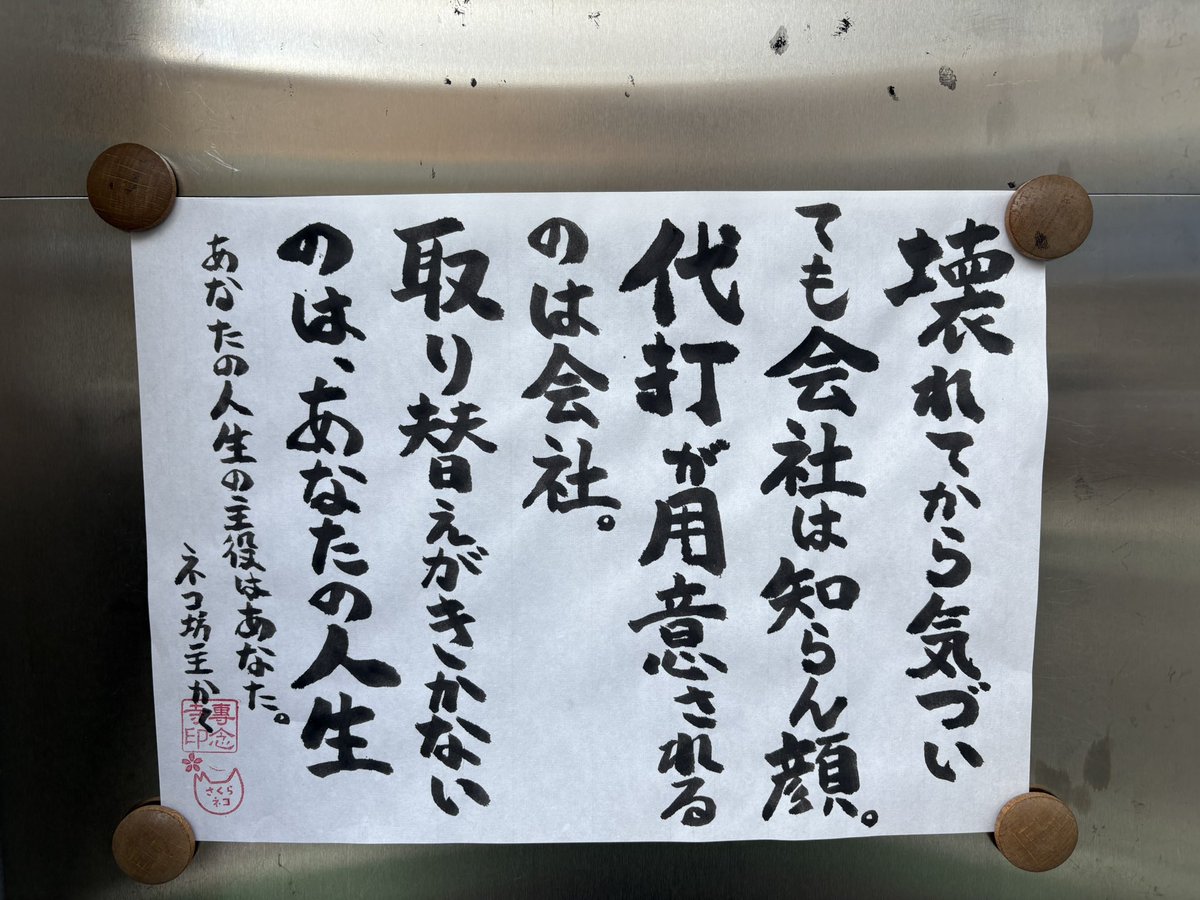 壊れてから気づい
ても会社は知らん顔。
代打が用意される
のは会社。
取り替えがきかない
のは、あなたの人生
あなたの人生の主役はあなた。
ネコ坊主かく
專念
寺印
さくら
ネコ